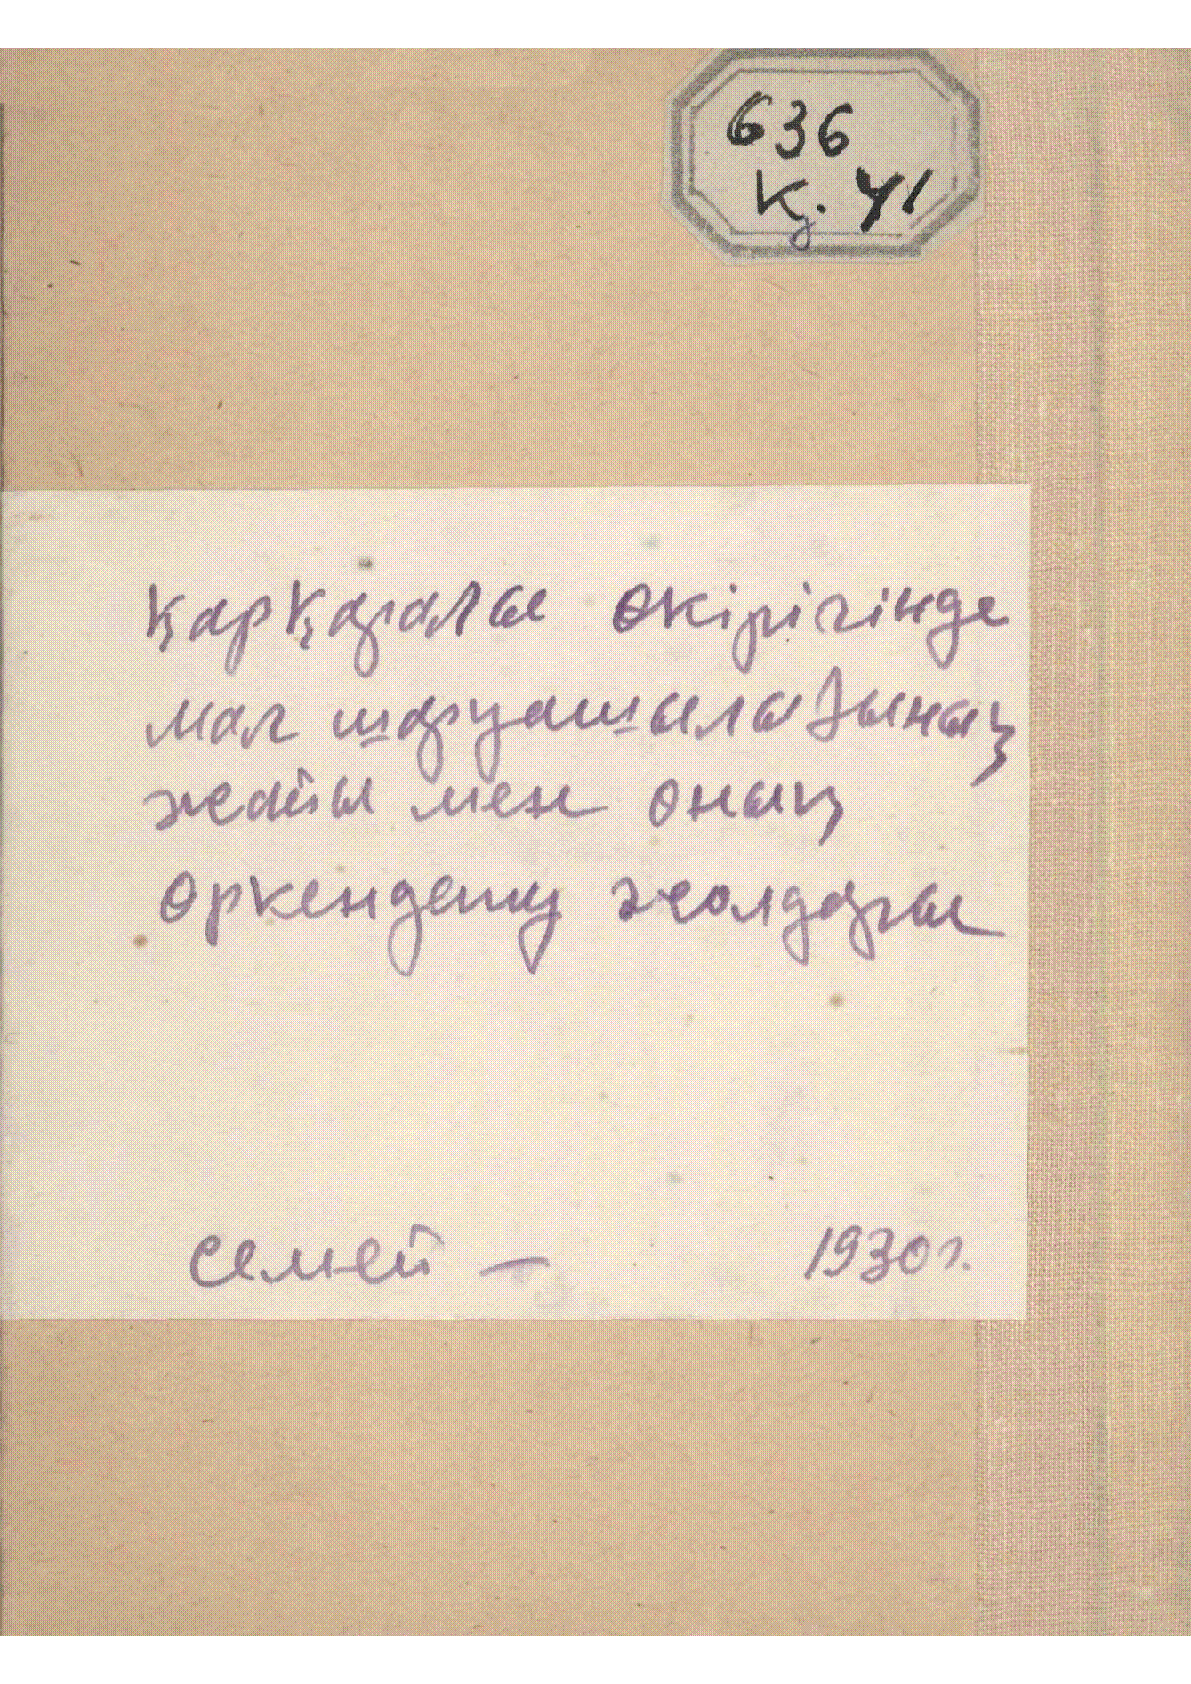 636
Қ. 41
Қарқаралы өкірігінде
мал шаруашылығының
жайы мен оның
өркендеу жолдары
Семей — 1930г.